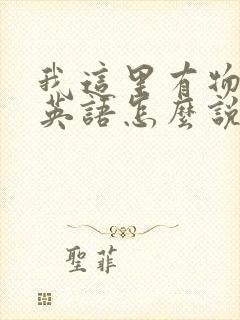 我這里有物
英語怎麼說
聖菲